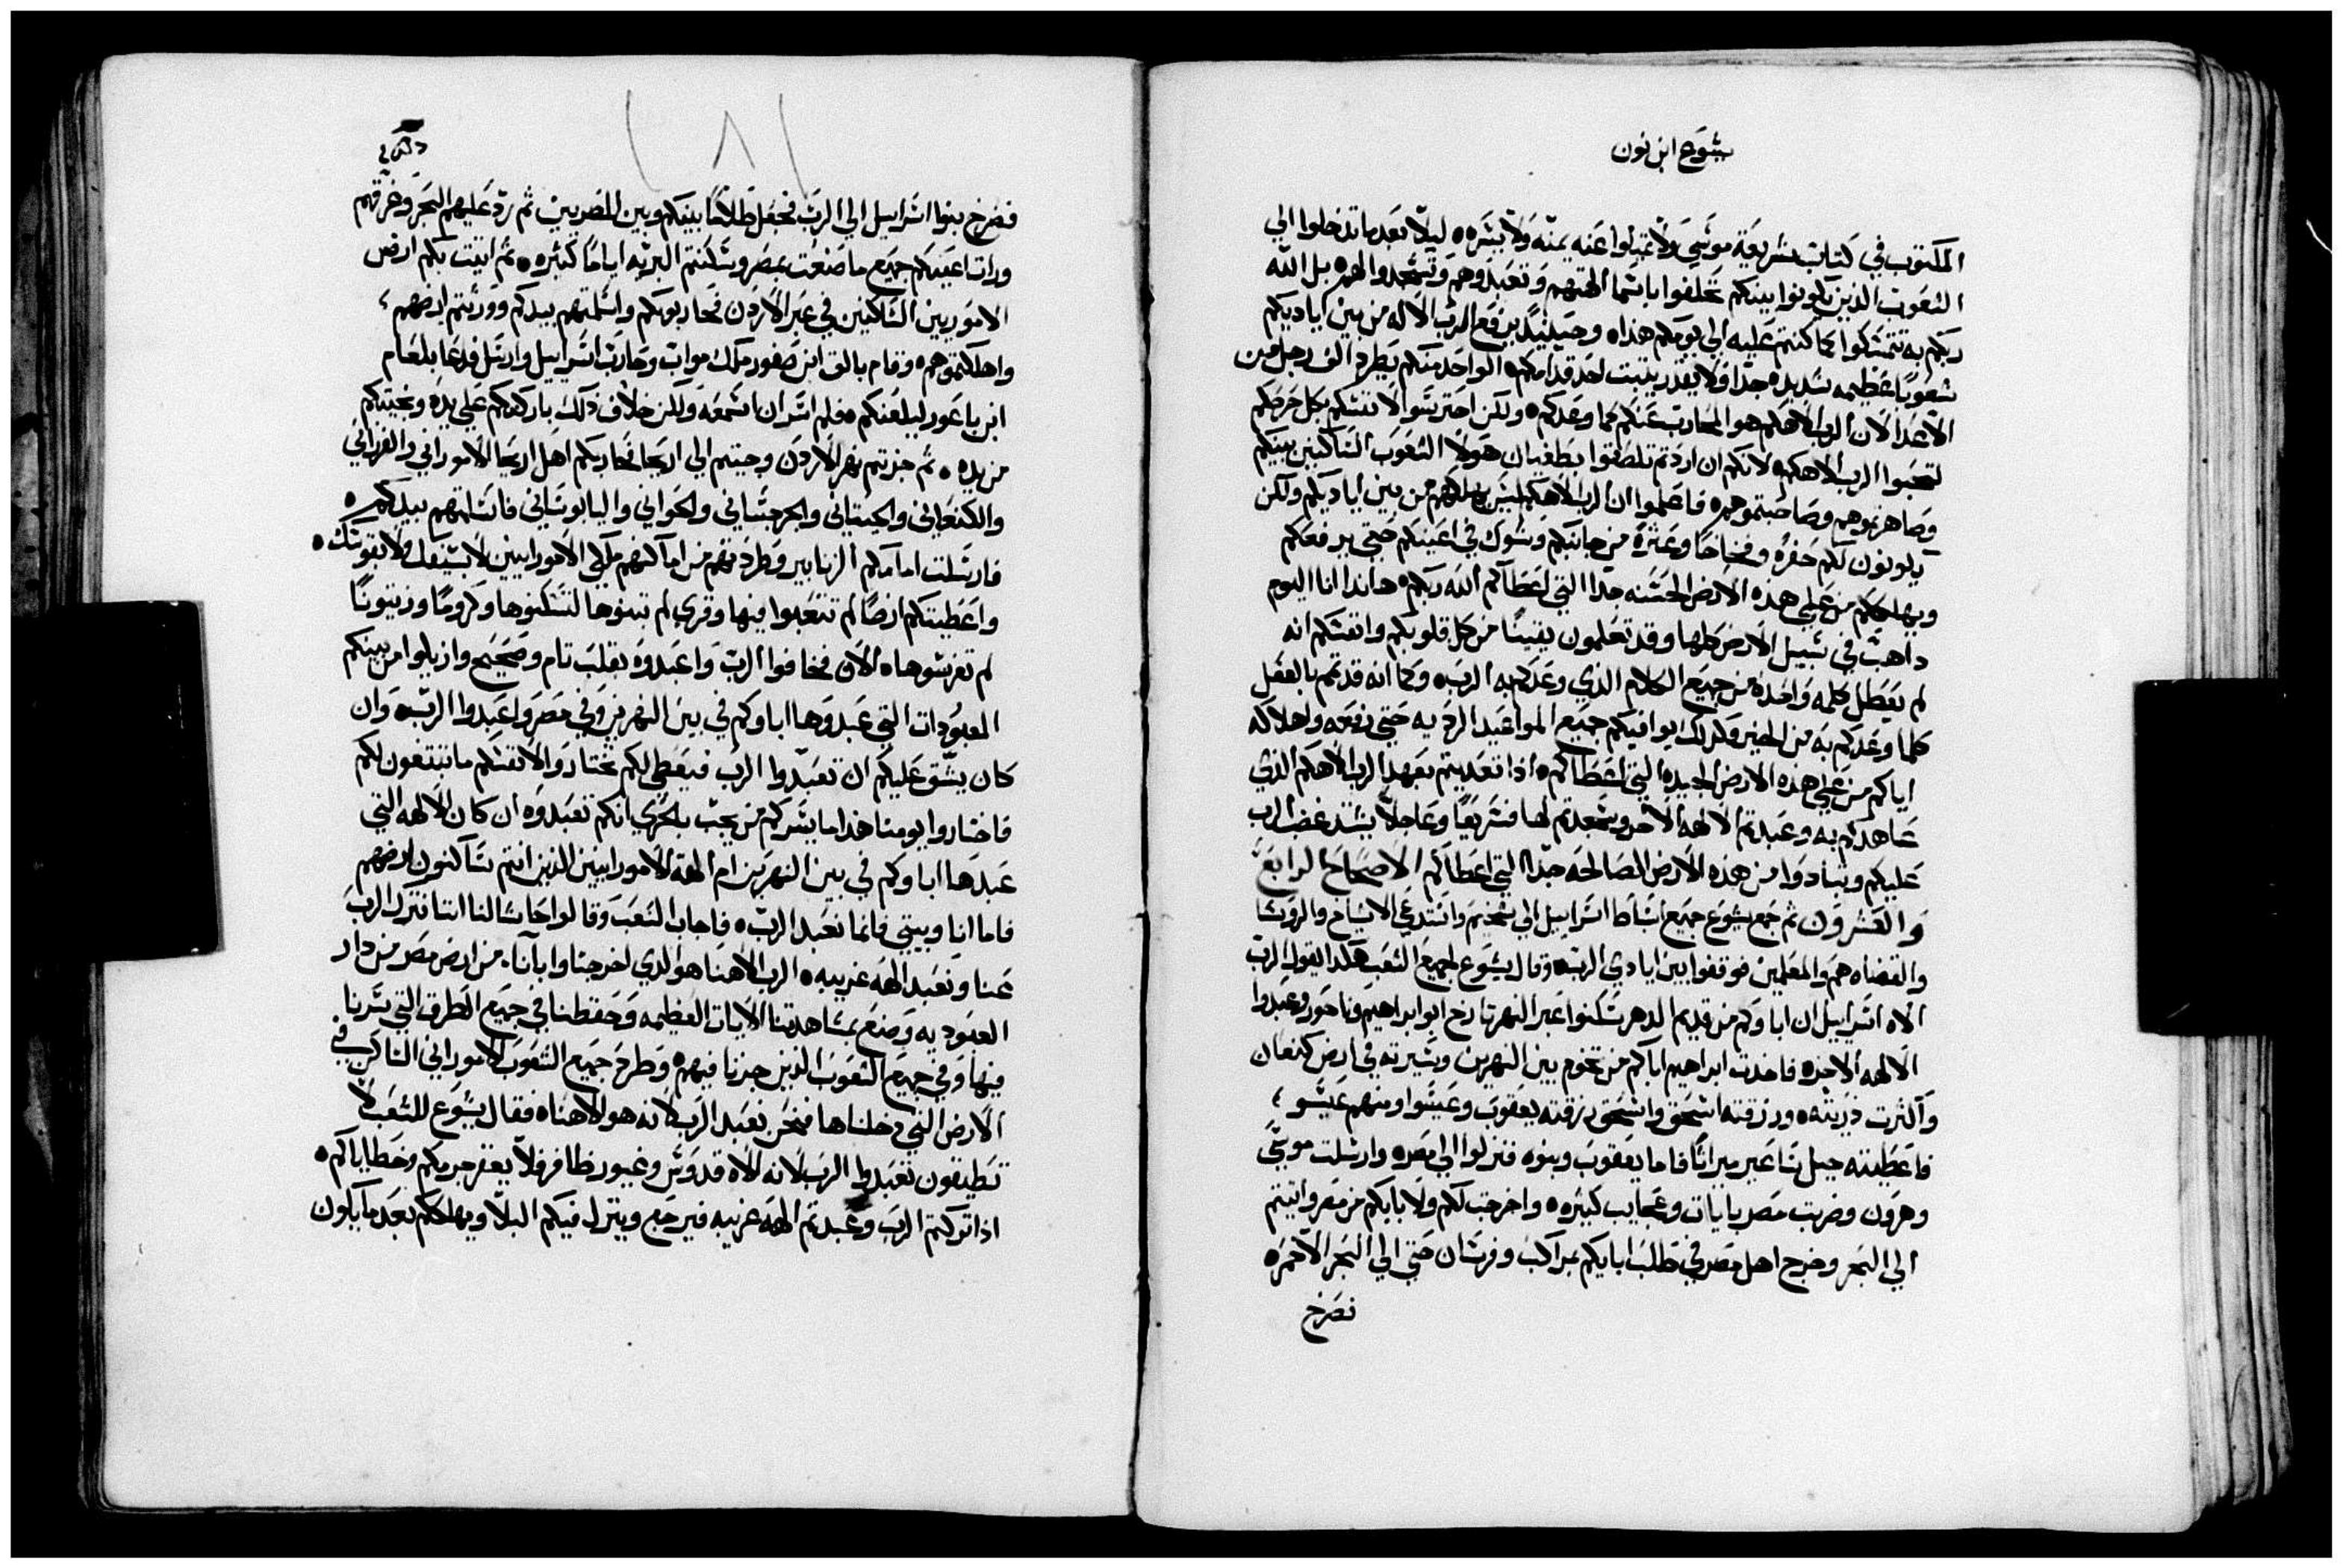 يشوع ابن نون
المكتوب في كتاب شريعة موسي ولا تميلوا عنه يمنه ولا يسره ليلا بعد ما تدخلوا الي
الشعوب الذين يكونوا بينكم تحلفوا باسما الهتهم وتعبدوهم وتسجدوا لهم بل الله
ربكم به تتمسكوا كما كنتم عليه الي يومكم هذا وحينيذ يرفع الرب الاله من بين اياديكم
شعوبا عظيمه شديده جدا ولا يقدر يثبت احد قدامكم الواحد منكم يطرد الف رجل من
الاعدا لان الرب الاهكم هو المحارب عنكم كما وعدكم ولكن احترسوا لانفسكم بكل حرصكم
لتحبوا الرب الاهكم لانكم ان اردتم تلصقوا بطغيان هولا الشعوب الساكنين بينكم
وصاهرتموهم وصاحبتموهم فاعلموا ان الرب الاهكم ليس يهلكهم من بين اياديكم ولكن
يكونون لكم حفره وفخاخا وعثرة من جانبكم وشوك في اعينكم حتي يرفعكم
ويهلككم من علي هذه الارض الحسنه جدا التي اعطاكم الله ربكم هاندا انا اليوم
داهب في سبيل الارض كلها وقد تعلمون يقينا من كل قلوبكم وانفسكم انه
لم يعطل كلمه واحده من جميع الكلام الذي وعدكم به الرب وكما انه قد تم بالفعل
كلما وعدكم به من الخير وكذلك يوافيكم جميع المواعيد الرديه حتي دفعه واهلاكه
اياكم من علي هذه الارض الجيده التي اعطاكم اذا تعديتم بعهد الرب الاهكم الذي
عاهدكم به وعبدتم الالهه الاخر وسجدتم لها فسريعا وعاجلا يشتد غضب الرب
عليكم وتبادوا من هذه الارض الصالحه جدا التي اعطاكم الاصحاح الرابع
والعشرون ثم جمع يشوع جميع اسباط اسراييل الي شخيم واستدعي الاشياخ والروسا
والقضاه هم والمعلمين فوقفوا بين ايادي الرب وقال يشوع لجميع الشعب هكدا يقول الرب
الاه اسراييل ان اباوكم من قديم الدهر سكنوا عبر النهر تارخ ابو ابراهيم وناحور وعبدوا
الالهه الاخره فاخدت ابراهيم اباكم من تخوم بين النهرين وسيرته في ارض كنعان
واكثرت ذريته ورزقته اسحق واسحق رزقته يعقوب وعيسوا ومنهم عيسو
فاعطيته جبل ساعير ميراثا فاما يعقوب وبنوه فنزلوا الي مصر وارسلت موسي
وهرون وضربت مصر بايات وعجايب كثيره واخرجت لكم ولابايكم من مصر واتيتم
الي البحر وخرج اهل مصر في طلب ابايكم بمراكب وفرسان حتي الي البحر الاحمر
فصرخ
١٨١
فصرخ بنوا اسراييل الي الرب فجعل ظلاما بينكم وبين المصريين ثم رد عليهم البحر وغرقهم
ورات اعينكم جميع ما صنعت بمصر وسكنتم البريه اياما كثيره ثم اتيت بكم ارض
الاموريين الساكنين في عبر الاردن فحاربوكم واسلمتهم بيدكم وورثتم ارضهم
واهلكتموهم وقام بالق ابن صفور ملك مواب وحارب اسراييل وارسل فدعا بلعام
ابن باعور ليلعنكم فلم اسر ان اسمعه ولكن خلاف ذلك باركتكم علي يده ونجيتكم
من يده ثم جزتم نهر الاردن وجيتم الي اريحا فحاربكم اهل اريحا الاموراني والفرزاني
والكنعاني والحيتاني والجرجساني والحواني واليابوساني فاسلمتهم بيدكم
فارسلت امامكم الزنابير وطردتهم من اماكنهم ملكي الامورانيين لا بسيفك ولا بقوسك
واعطيتكم ارضا لم تتعبوا فيها وقري لم تبنوها لتسكنوها وكروما وزيتونا
لم تغرسوها الان فخافوا الرب واعبدوه بقلب تام وصحيح وازيلوا من بينكم
المعبودات التي عبدوها اباوكم في بين النهرين وفي مصر واعبدوا الرب وان
كان يشق عليكم ان تعبدوا الرب فيعطي لكم تختاروا لانفسكم ما تبتغون لكم
فاختاروا يومنا هذا ما يسركم من يجب بالحري انكم تعبدوه ان كان الالهه التي
عبدها اباوكم في بين النهرين ام الهة الامورانيين الذين انتم ساكنون ارضهم
فاما انا وبيتي فانما نعبد الرب فاجاب الشعب وقالوا حاشا لنا اننا نترك الرب
عنا ونعبد الهه غريبه الرب الاهنا هو الذي اخرجنا وابآنا من ارض مصر من دار
العبوديه وصنع بمشاهدتنا الايات العظيمه وحفظنا في جميع الطرق التي سرنا
فيها وفي جميع الشعوب الذين جزنا فيهم وطرح جميع الشعوب الاموراني الساكن في
الارض التي دخلناها فنحن نعبد الرب لانه هو الاهنا فقال يشوع للشعب لا
تطيقون تعبدوا الرب لانه الاه قدوس وغيور ظافر فلا يغفر جرمكم وخطاياكم
اذا تركتم الرب وعبدتم الهه غريبه فيرجع وينزل فيكم البلا ويهلككم بعد ما يكون